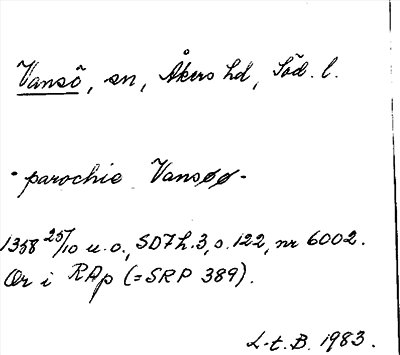 Vansö, sn, Åkers hd, Söd. l.
· parochie Vansøø -
1358 25/10 u.o., SD7h.3, s.122, nr 6002.
Or i RAp (=SRP 389).
L-t. B. 1983.